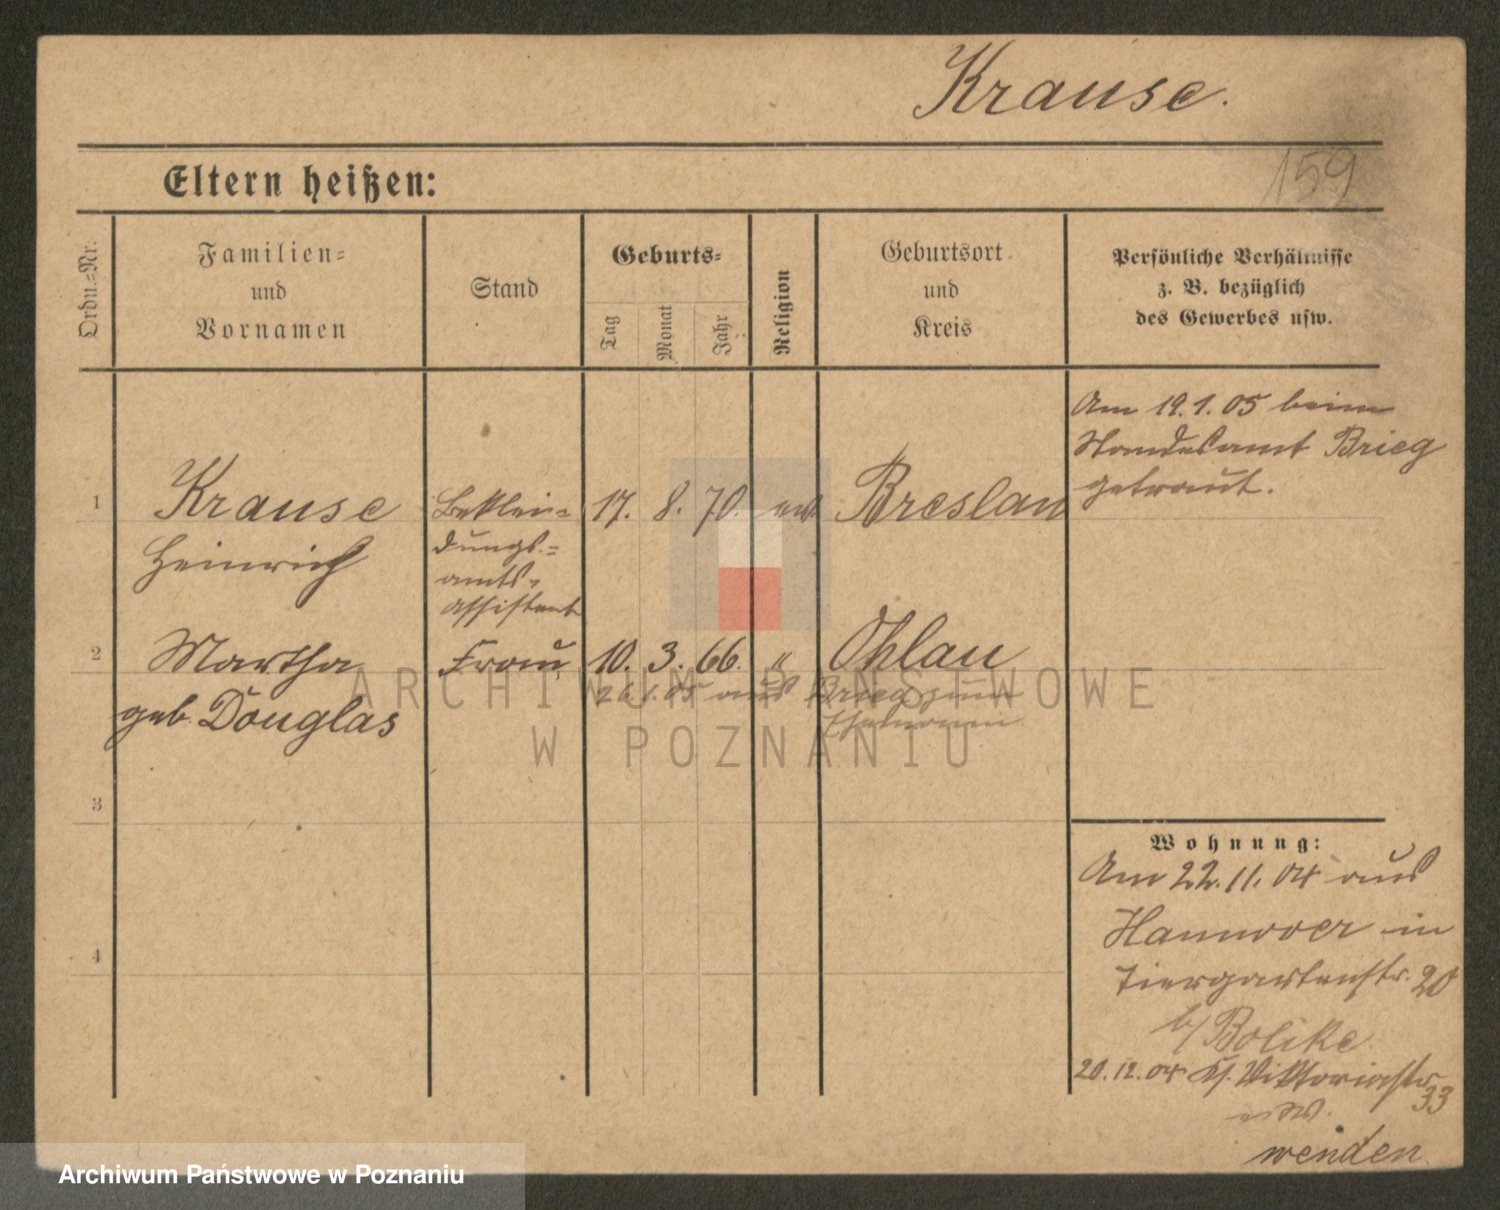 Krause.
159
Eltern heißen:
Ordn.=Nr.
Familien=
und
Vornamen
Stand
Geburts=
Tag
Monat
Jahr
Religion
Geburtsort
und
Kreis
Persönliche Verhältnisse
z. B. bezüglich
des Gewerbes usw.
Am 19.1.05 beim
Standesamt Brieg
getraut.
1 Krause Beklei= 17. 8. 70. ev Breslau
Heinrich dungs=
amts=
assistent
2 Martha Frau 10. 3. 66. " Ohlau
26.1.05 aus Brieg zum
geb. Douglas Ehemann
3
4
Wohnung:
Am 22.11.04 aus
Hannover in
Tiergartenstr. 20
b/ Bolike
20.12.04 Viktoriastr
33
wenden
ARCHIWUM PAŃSTWOWE
W POZNANIU
Archiwum Państwowe w Poznaniu